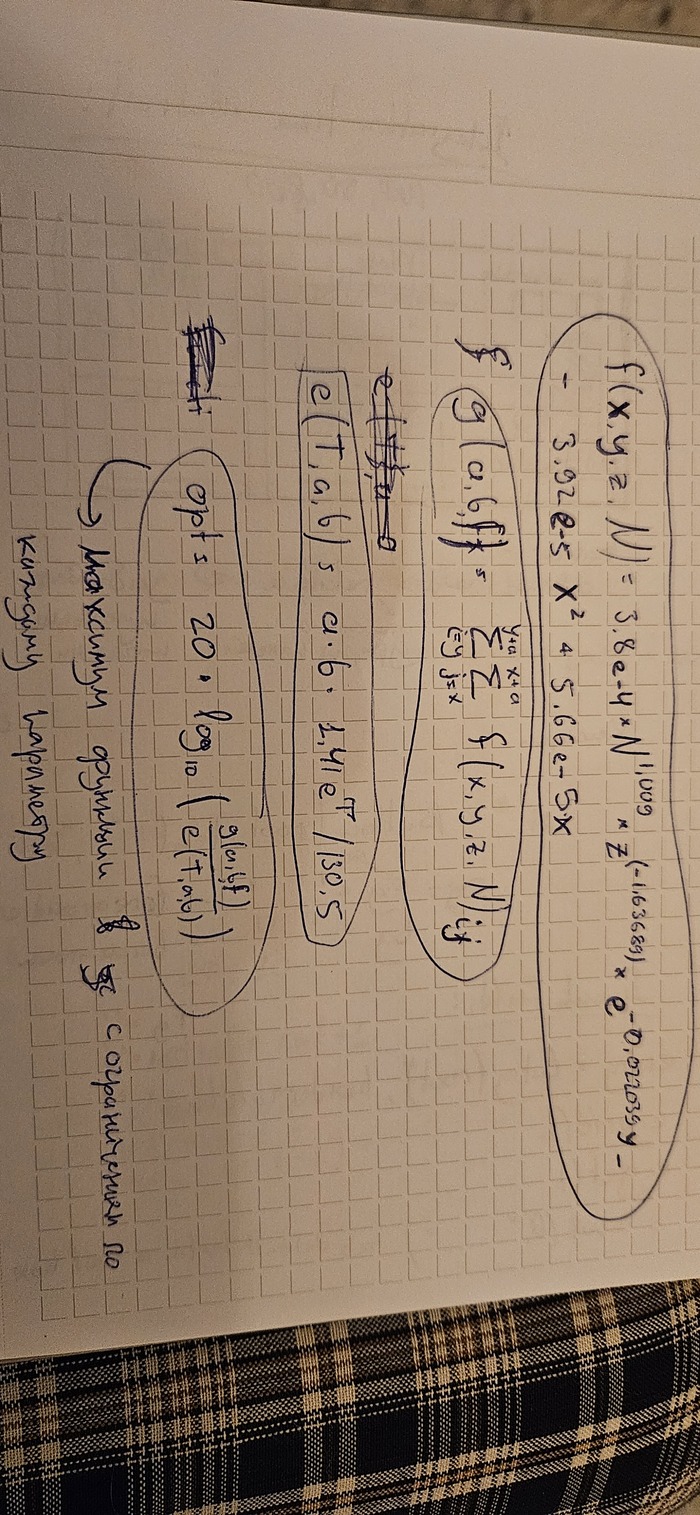 f(x, y, z, N) = 3.8e-4 * N^1,009 * z^(-1,63689) * e^-0,022039y -
- 3.92e-5 x² + 5.66e-5x
g(a,b,f) = Σ_{i=y}^{y+a} Σ_{j=x}^{x+a} f(x, y, z, N)ij
e(T, a, b) = a · b · 1,41 e^T / 130,5
opt = 20 · log₁₀ ( g(a,b,f) / e(T,a,b) )
↳ максимум функции с ограничениями по
каждому параметру